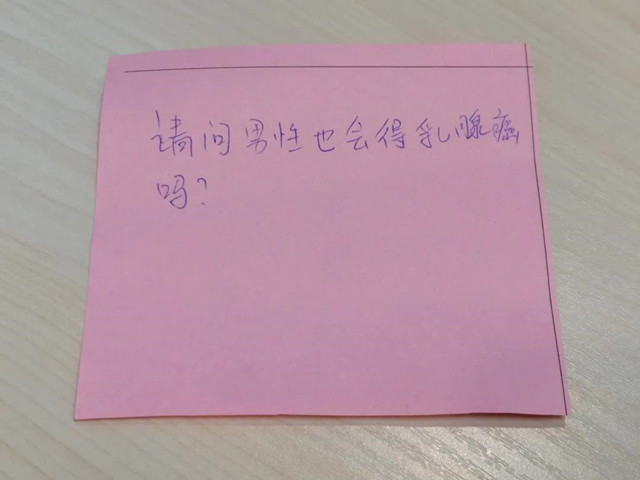 请问男性也会得乳腺癌
吗?